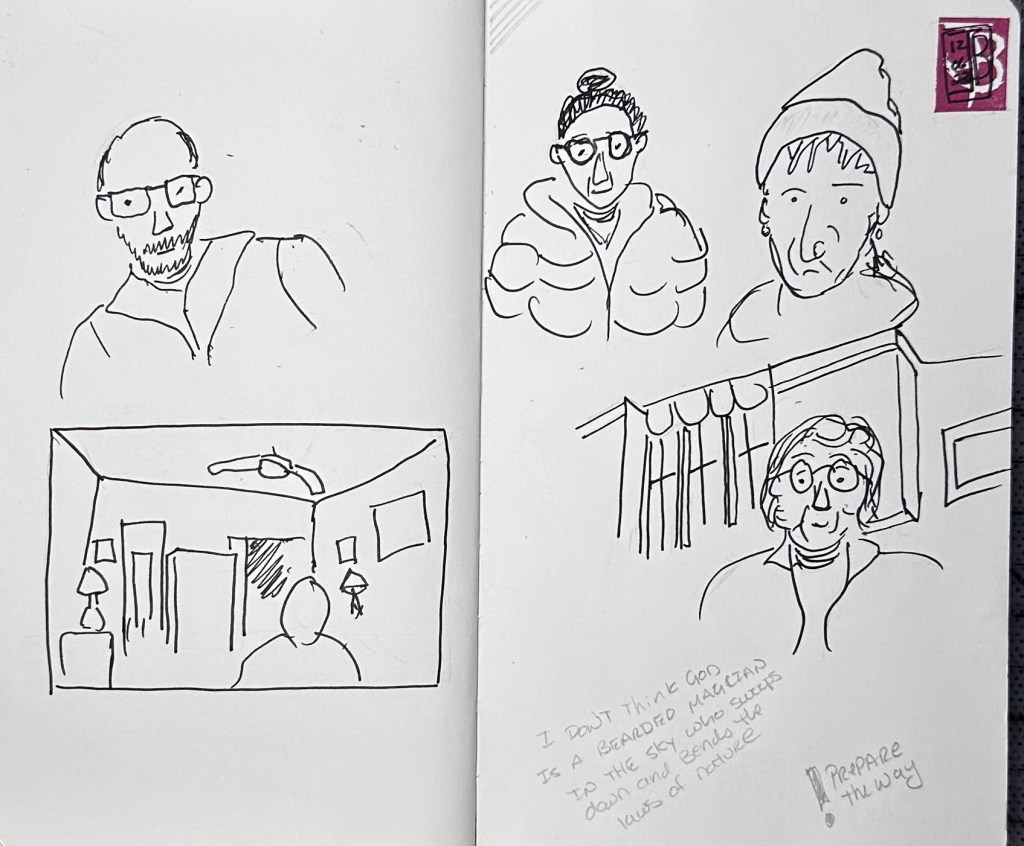 12
06
B
I DON'T Think GOD
IS A BEARDED MAGICIAN
IN THE SKY who swoops
down and Bends the
laws of nature
! PrePARE
the way